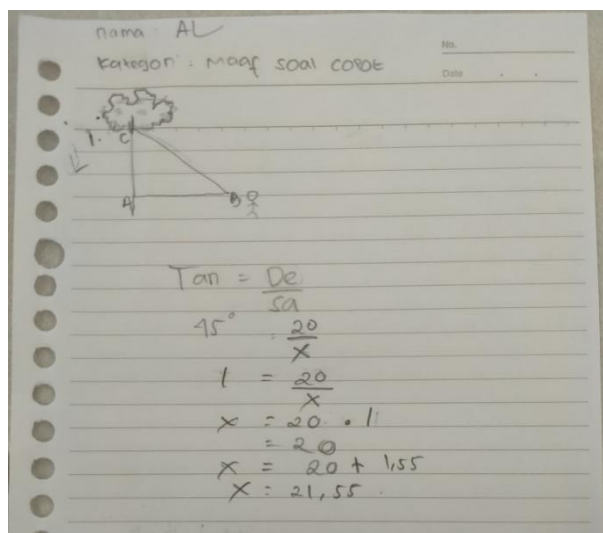 nama : AL
No.
Kategori : Maaf soal copot
Date
1.
C
A B
Tan = De/sa
45° = 20/x
1 = 20/x
x = 20 . 1
= 20
x = 20 + 1,55
x = 21,55